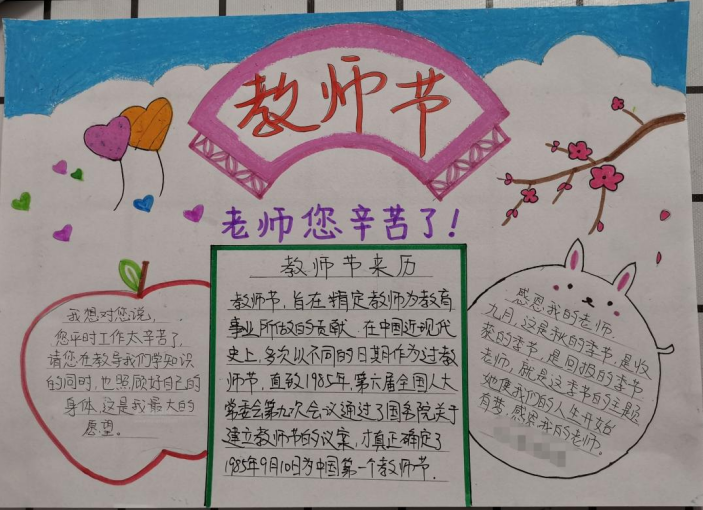 教师节
老师您辛苦了!
我想对您说,
您平时工作太辛苦了,
请您在教导我们学知识
的同时,也照顾好自己的
身体,这是我最大的
愿望。
教师节来历
教师节,旨在肯定教师为教育
事业所做的贡献.在中国近现代
史上,多次以不同的日期作为过教
师节,直致1985年,第六届全国人大
常委会第九次会议通过了国务院关于
建立教师节的议案,才真正确定了
1985年9月10日为中国第一个教师节.
感恩我的老师.
九月,这是秋的季节,是收
获的季节,是回报的季节.
老师,就是这季节的主题
她使我们的人生开始
有梦,感恩我的老师.